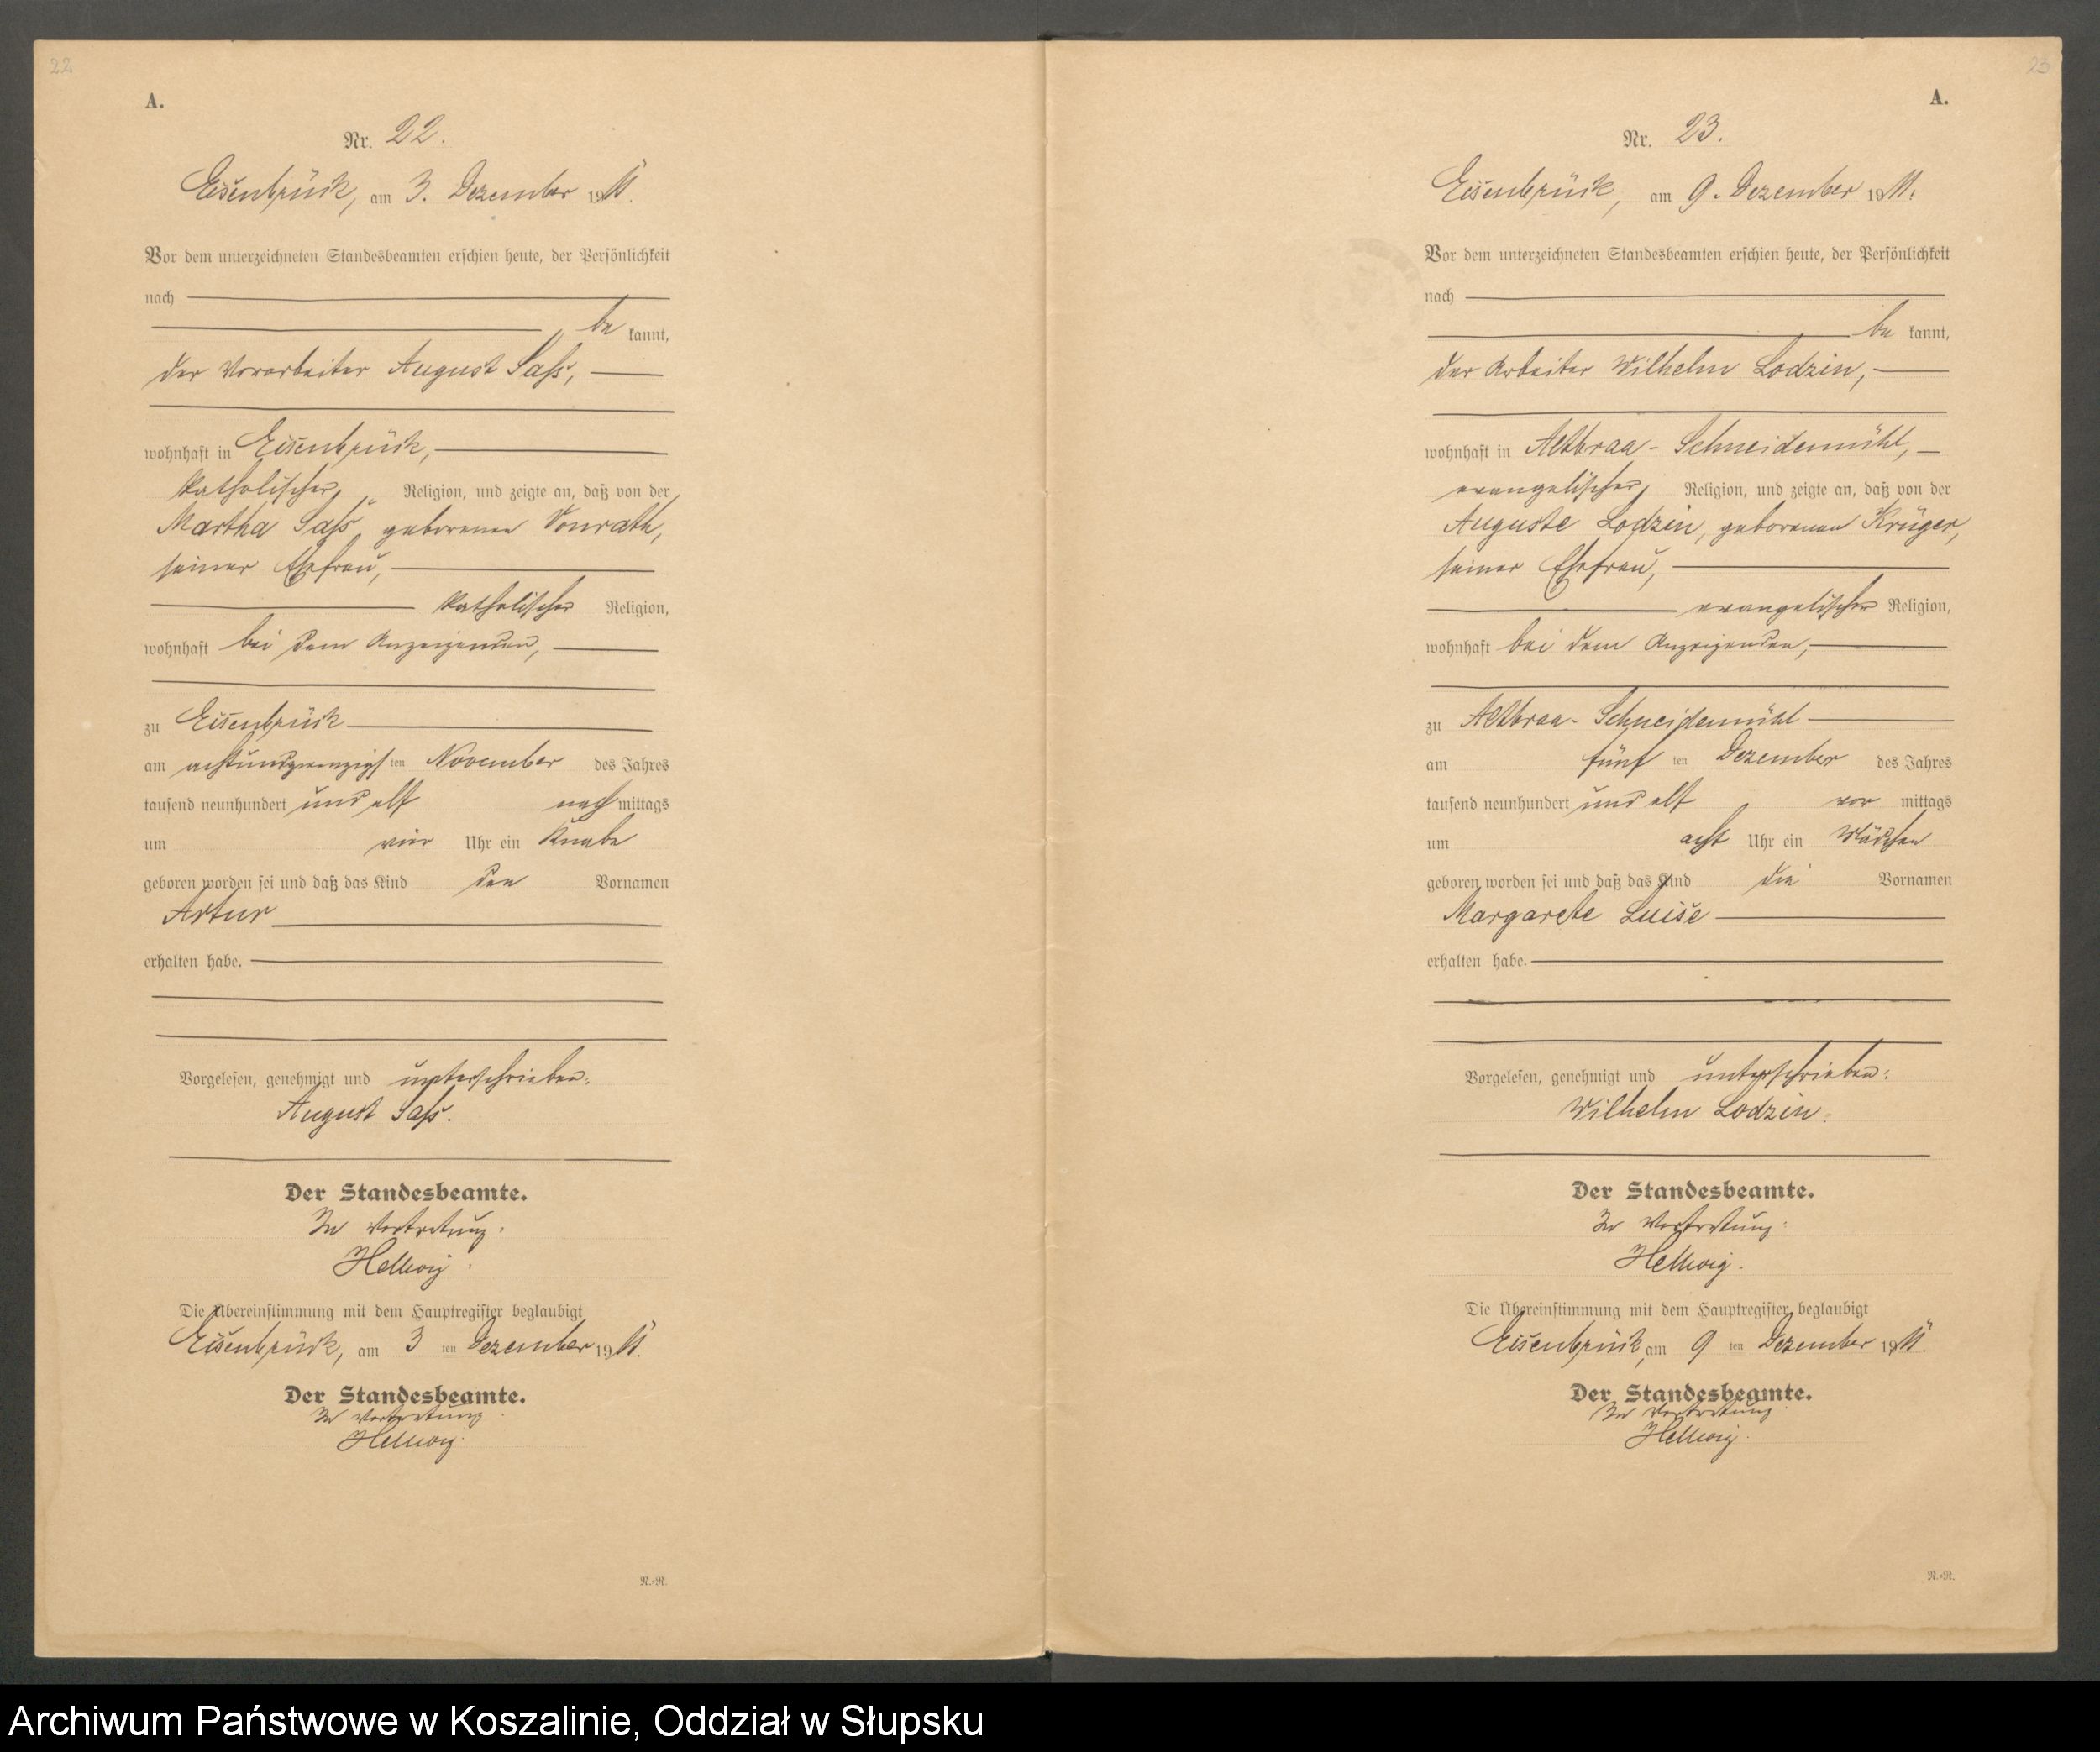 22
A.
Nr. 22.
Eisenbrück, am 3. Dezember 1911.
Vor dem unterzeichneten Standesbeamten erschien heute, der Persönlichkeit
nach
be kannt,
der Vorarbeiter August Saß,
wohnhaft in Eisenbrück,
katholischer Religion, und zeigte an, daß von der
Martha Saß, geborenen Vonrath,
seiner Ehefrau,
katholischer Religion,
wohnhaft bei dem Anzeigenden,
zu Eisenbrück
am achtundzwanzigsten November des Jahres
tausend neunhundert und elf nachmittags
um vier Uhr ein Knabe
geboren worden sei und daß das Kind den Vornamen
Artur
erhalten habe.
Vorgelesen, genehmigt und unterschrieben:
August Saß.
Der Standesbeamte.
In Vertretung:
Hellwig.
Die Übereinstimmung mit dem Hauptregister beglaubigt
Eisenbrück, am 3 ten Dezember 1911.
Der Standesbeamte.
In Vertretung
Hellwig.
N.-N.
23
A.
Nr. 23.
Eisenbrück, am 9. Dezember 1911.
Vor dem unterzeichneten Standesbeamten erschien heute, der Persönlichkeit
nach
be kannt,
der Arbeiter Wilhelm Lodzin,
wohnhaft in Altbraa-Schneidemühl,
evangelischer Religion, und zeigte an, daß von der
Auguste Lodzin, geborenen Krüger,
seiner Ehefrau,
evangelischer Religion,
wohnhaft bei dem Anzeigenden,
zu Altbraa-Schneidemühl
am fünf ten Dezember des Jahres
tausend neunhundert und elf vor mittags
um acht Uhr ein Mädchen
geboren worden sei und daß das Kind die Vornamen
Margarete Luise
erhalten habe.
Vorgelesen, genehmigt und unterschrieben:
Wilhelm Lodzin.
Der Standesbeamte.
In Vertretung:
Hellwig.
Die Übereinstimmung mit dem Hauptregister beglaubigt
Eisenbrück, am 9 ten Dezember 1911.
Der Standesbeamte.
In Vertretung
Hellwig.
N.-N.
Archiwum Państwowe w Koszalinie, Oddział w Słupsku